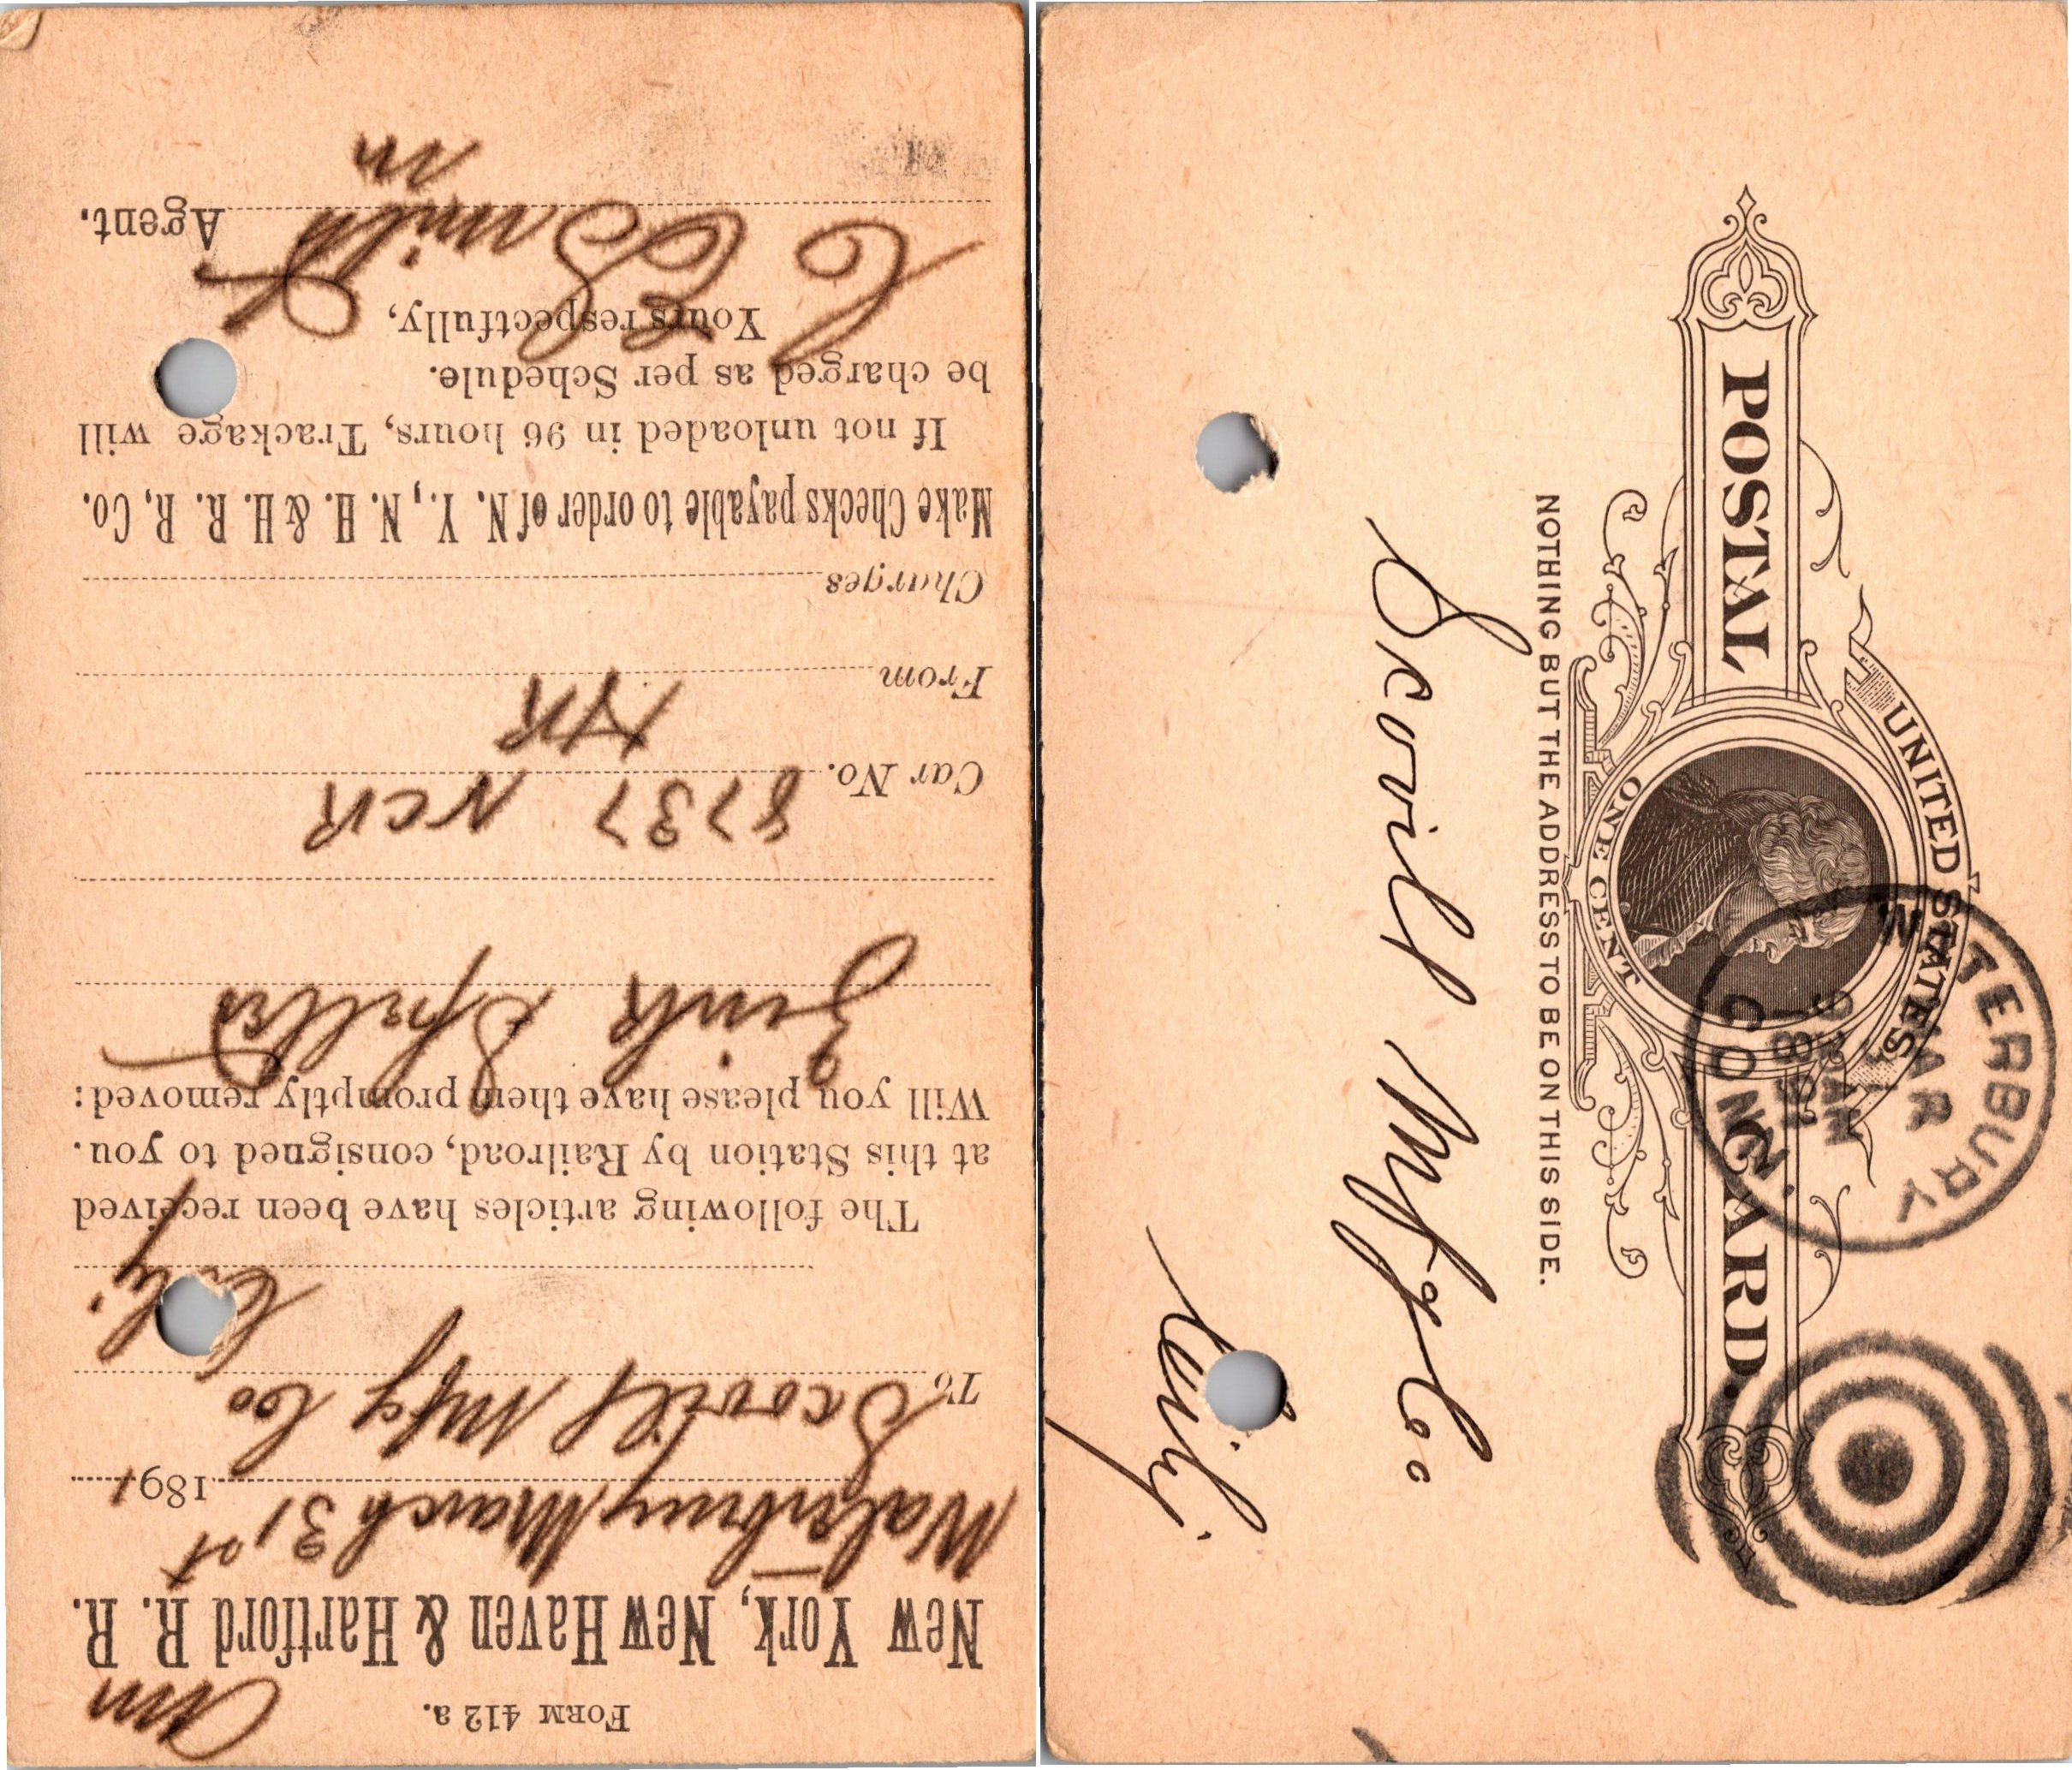 FORM 412 a.
New York, New Haven & Hartford R. R.
Waterbury March 31st 1891
To Scovill Mfg Co
City
The following articles have been received
at this Station by Railroad, consigned to you.
Will you please have them promptly removed:
Spelter
Car No. 8737 NCR
From
Charges
Make Checks payable to order of N. Y., N. H. & H. R. R, Co.
If not unloaded in 96 hours, Trackage will
be charged as per Schedule.
Yours respectfully,
C E Smith Agent.
m
UNITED STATES
POSTAL CARD.
ONE CENT
NOTHING BUT THE ADDRESS TO BE ON THIS SIDE.
WATERBURY
MAR
31
9 30 AM
1891
CONN.
Scovill Mfg Co
City